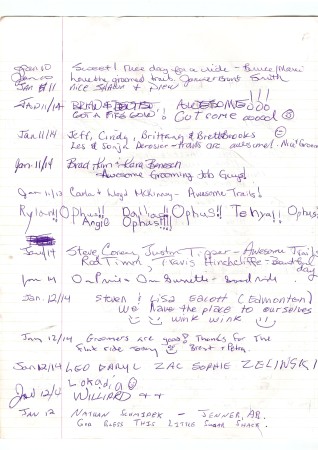 Jan 10 Sweet! Nice day for a ride - Bruce/Marie
Jan 10 Love the groomed trails Jeanne & Brent Smith
Jan 11 NICE
JAN 11/14 BRIAN AWESOME!!!
GOT A FIRE GOIN'! Curtromeooood ☺
Jan 11/14 Jeff, Cindy, Brittany & Brett Brooks ☺
Les & Sonja Derosier - trails are awesome! Nice Groomer
Jan 11/14 Brad Kim & Kara
Awesome Grooming Job Guys!
Jan 11/13 Carla & Lloyd McKinney - Awesome Trails!
Ryland Ophus!! Dallas!! Ophus!! Tehya!! Ophus!
Angie Ophus!!!
Jan/14 Steve Justin Tipper - Awesome Trails
Rod Timm, Travis Hinchcliffe - Beautiful
day
Jan 14
Jan. 12/14 Steven & Lisa (Edmonton)
We have the place to ourselves
☺ wink wink ☺
Jan 12/14 Groomers are good! Thanks for the
ride today ☺ Brent + Petra
Jan 12/14 LEO DARYL ZAC SOPHIE ZELINSKI
Jan 12/14 ☺
WILLIARD ++
JAN 12 NATHAN - JENNER, AB.
GOD BLESS THIS LITTLE SUGAR SHACK.